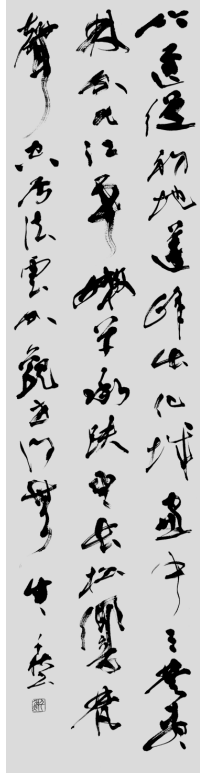 竹逕從初地蓮峰出化城窗中三楚盡
林外九江平嫩草承趺坐長松響梵
聲空居法雲外觀世得無生